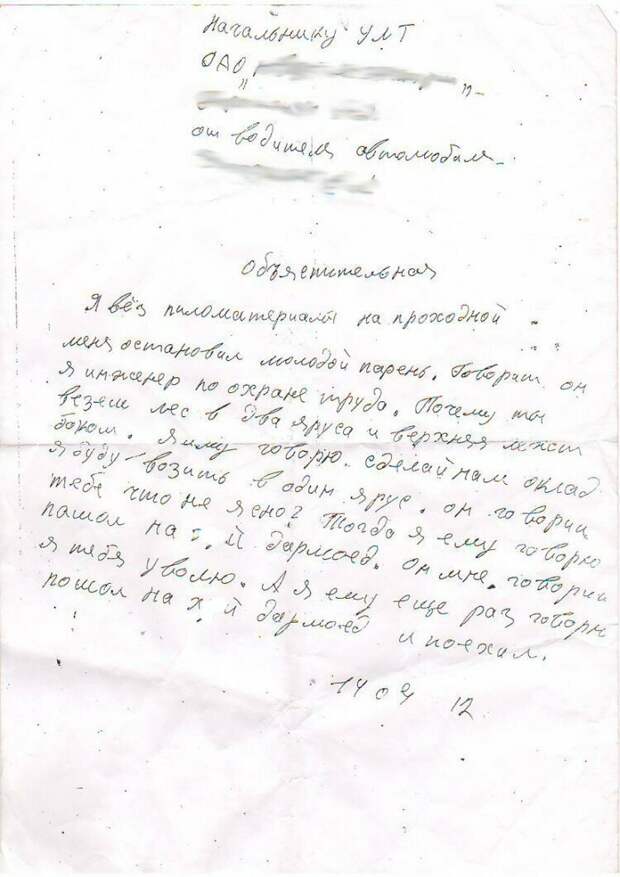 Начальнику УМТ
ОАО "
"-
от водителя автомобиля-
Объястительная
Я вёз пиломатериалы на проходной
меня остановил молодой парень. Говорит он
я инженер по охране труда. Почему ты
везеш лес в два яруса и верхняя лежит
боком. Я ему говорю. сделай нам оклад
я буду возить в один ярус. он говорит
тебе что не ясно? Тогда я ему говорю
пашол на . й дармоед. он мне. говорит
я тебя уволю. А я ему еще раз говорю
пошол на х й дармоед и поехал.
14 04 12